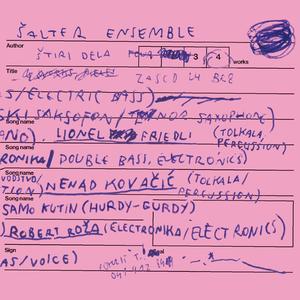 ŠALTER ENSEMBLE
Author
ŠTIRI DELA FOUR 3 4 works
Title
ZASCD 4 BEB
AS/ELECTRIC BASS)
Song name
SKI SAKSOFON/TENOR SAXOPHONE)
ANO). LIONEL FRIEDLI (TOLKALA,
PERCUSSION)
Song name
RONIKA/DOUBLE BASS, ELECTRONICS)
VODSTVO/
Song name
TION) NENAD KOVAČIĆ (TOLKALA/
PERCUSSION)
Song name
SAMO KUTIN (HURDY-GURDY)
ROBERT ROŽA (ELECTRONIKA/ELECTRONICS)
Sign
AS/VOICE)